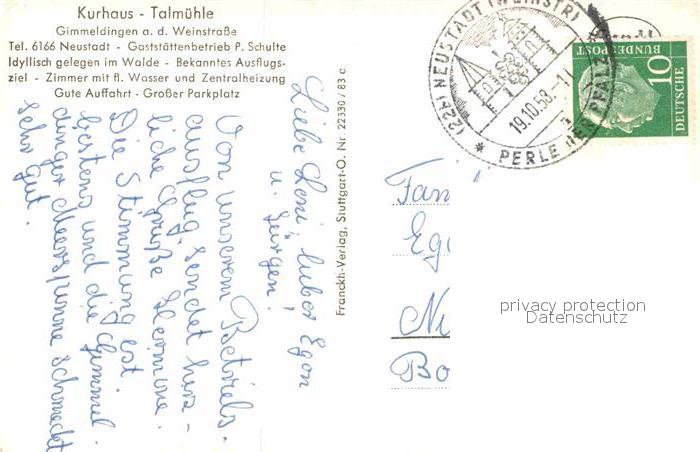 Kurhaus - Talmühle
Gimmeldingen a. d. Weinstraße
Tel. 6166 Neustadt - Gaststättenbetrieb P. Schulte
Idyllisch gelegen im Walde - Bekanntes Ausflugs-
ziel - Zimmer mit fl. Wasser und Zentralheizung
Gute Auffahrt - Großer Parkplatz
Liebe Leni, lieber Egon
u. Jürgen!
Von unserem Betriebs-
ausflug sendet herz-
liche Grüße Hermine.
Die Stimmung ist
bestens und die Gimmel-
dinger Meerspinne schmeckt
sehr gut.
Franckh-Verlag, Stuttgart-O. Nr. 22330/83 c
(22b) NEUSTADT (WEINSTR)
19.10.58.-1
* PERLE DER PFALZ
10
DEUTSCHE
BUNDESPOST
Fam
Eg
Ni
Bo
privacy protection
Datenschutz